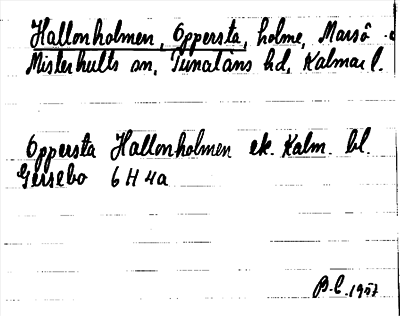 Hallonholmen, Oppersta, holme, Marsö
Misterhults sn, Tunaläns hd, Kalmar l.
Oppersta Hallonholmen ek. Kalm. bl.
Gersebo 6 H 4a
B.L. 1957